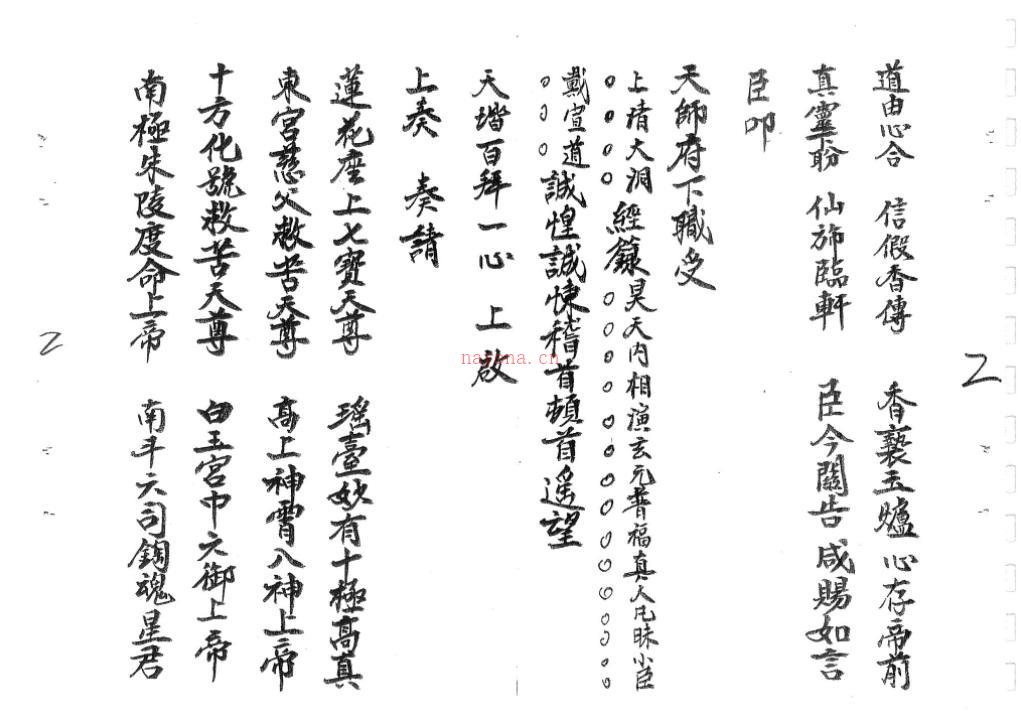 道由心合 信假香傳 香爇玉爐 心存帝前
真靈盼 仙旆臨軒 臣今關告 咸賜如言
臣叩
天師府下職受
上清大洞經籙昊天內相演玄元普福真人凡昧小臣
戴宣道誠惶誠悚稽首頓首遙望
天堦百拜一心 上 啟
上奏 奏請
蓮花座上七寶天尊 瑤臺妙有十極高真
東宮慈父救苦天尊 高上神霄八神上帝
十方化號救苦天尊 白玉宮中六御上帝
南極朱陵度命上帝 南斗六司鈎魂星君
2
2
nayona.cn